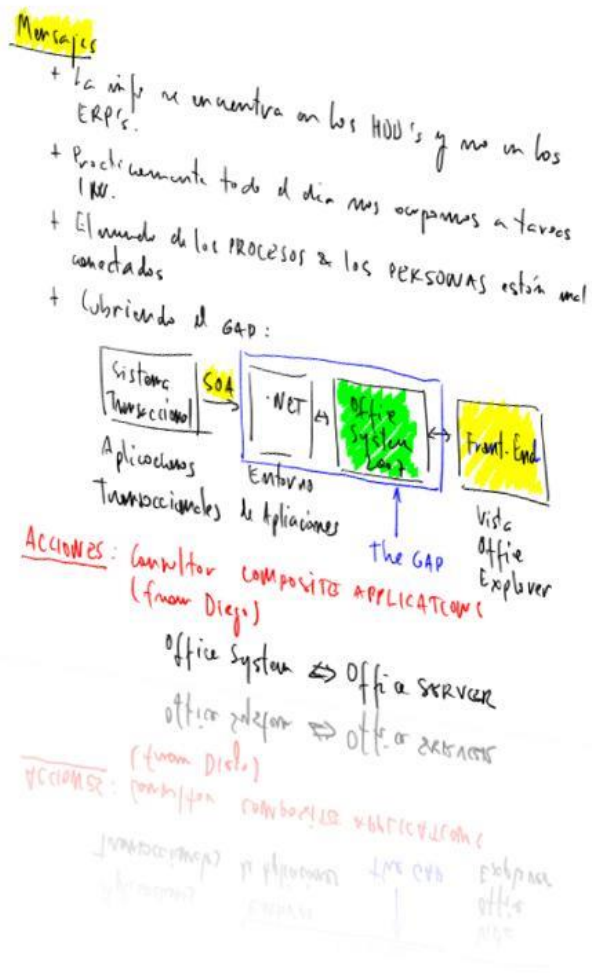 Mensajes
+ La info se encuentra en los HDD's y no en los
ERP's.
+ Practicamente todo el dia nos ocupamos a tareas
+ El mundo de los PROCESOS & los PERSONAS están mal
conectados
+ Cubriendo el GAP:
Sistema
Transaccional
SOA
.NET
Office
System
2007
Front-End
Aplicaciones
Transaccionales
Entorno
de Apliaciones
the GAP
Vista
Office
Explorer
ACCIONES: Consultar COMPOSITE APPLICATIONS
(from Diego)
Office System ⇔ Office SERVER